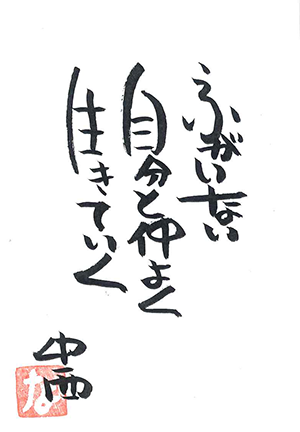 ふがいない
自分と仲よく
生きていく
中西
な